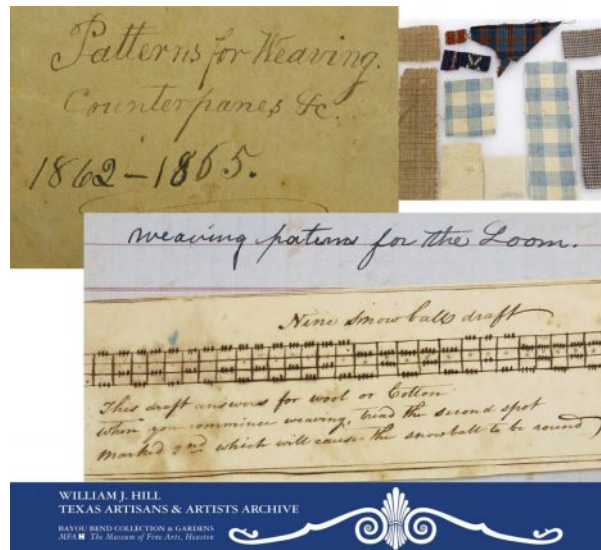 Patterns for Weaving.
Counterpanes &c.
1862–1865.
weaving paterns for the Loom.
Nine snow balls draft
This draft answers for wool or Cotton
when you commince weaving, tread the second spot
marked 2nd which will cause the snowball to be round
WILLIAM J. HILL
TEXAS ARTISANS & ARTISTS ARCHIVE
BAYOU BEND COLLECTION & GARDENS
MFAH The Museum of Fine Arts, Houston